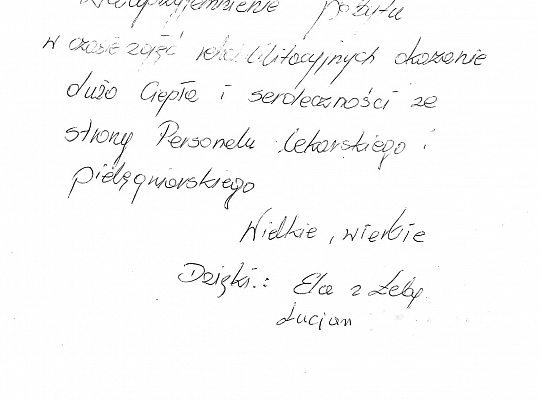 pożytu
w czasie zajęć rehabilitacyjnych okazanie
dużo Ciepła i serdeczności ze
strony Personelu Lekarskiego i
pielęgniarskiego
Wielkie, wielkie
Dzięki.: Ela z Łeby
Łucjan